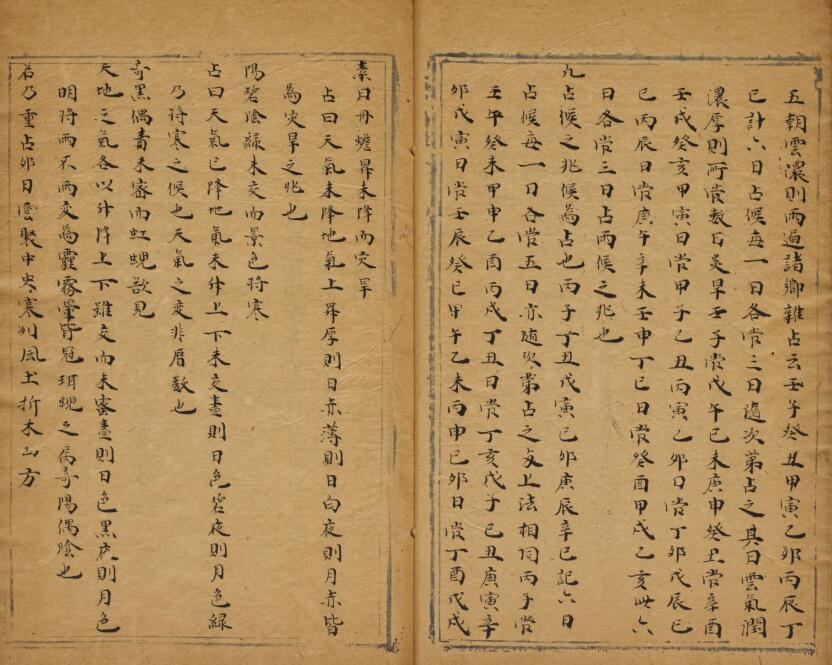 五朝雲濃則雨遍諸鄉雜占云壬子癸丑甲寅乙卯丙辰丁
巳計六日占候每一日各當三日隨次第占之其日雲氣潤
濃厚則所當數日炎旱壬子當戊午己未庚申癸丑當辛酉
壬戌癸亥甲寅日當甲子乙丑丙寅乙卯日當丁卯戊辰己
巳丙辰日當庚午辛未壬申丁巳日當癸酉甲戌乙亥此六
日各當三日占雨候之兆也
九占候之兆候為占也丙子丁丑戊寅己卯庚辰辛巳記六日
占候每一日各當五日亦隨次第占之與上法相同丙子當
壬午癸未甲申乙酉丙戌丁丑日當丁亥戊子己丑庚寅辛
卯戊寅日當壬辰癸巳甲午乙未丙申己卯日當丁酉戊戌
素日丹蟾昇未降而災旱
占曰天氣未降地氣上昇厚則日赤薄則日白夜則月赤皆
為災旱之兆也
陽碧陰綠未交而景色將寒
占曰天氣已降地氣未升上下未交晝則日色碧夜則月色綠
乃將寒之候也天氣之變非曆數也
奇黑偶青未密而虹蜺欲見
天地之氣各以升降上下雖交而未密晝則日色黑夜則月色
明將雨不雨變為霾霧暈背冠珥蜺之属奇陽偶陰也
若乃重占卯日雲聚中央寒列風土折木山方